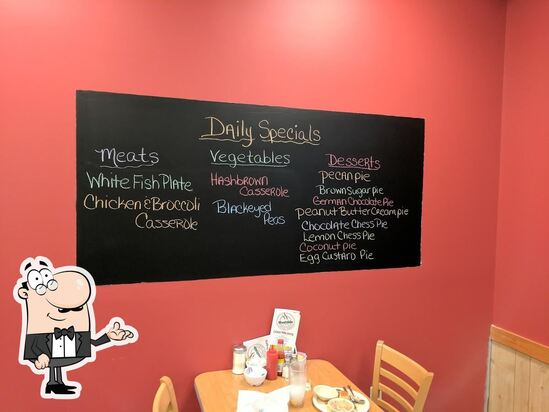 Daily Specials
Meats
White Fish Plate
Chicken & Broccoli
Casserole
Vegetables
Hashbrown
Casserole
Blackeyed
Peas
Desserts
Pecan pie
Brown Sugar pie
German Chocolate Pie
Peanut Butter Cream pie
Chocolate Chess Pie
Lemon Chess Pie
Coconut pie
Egg Custard Pie